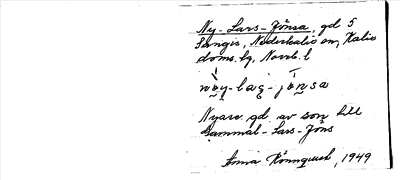 Ny-Lars-Jönsa, gd 5
Sangis, Nederkalix sn, Kalix
doms. hg, Norrb. l
Nyare gd. av son till
Gammal-Lars-Jöns
Anna Rönnquist, 1949